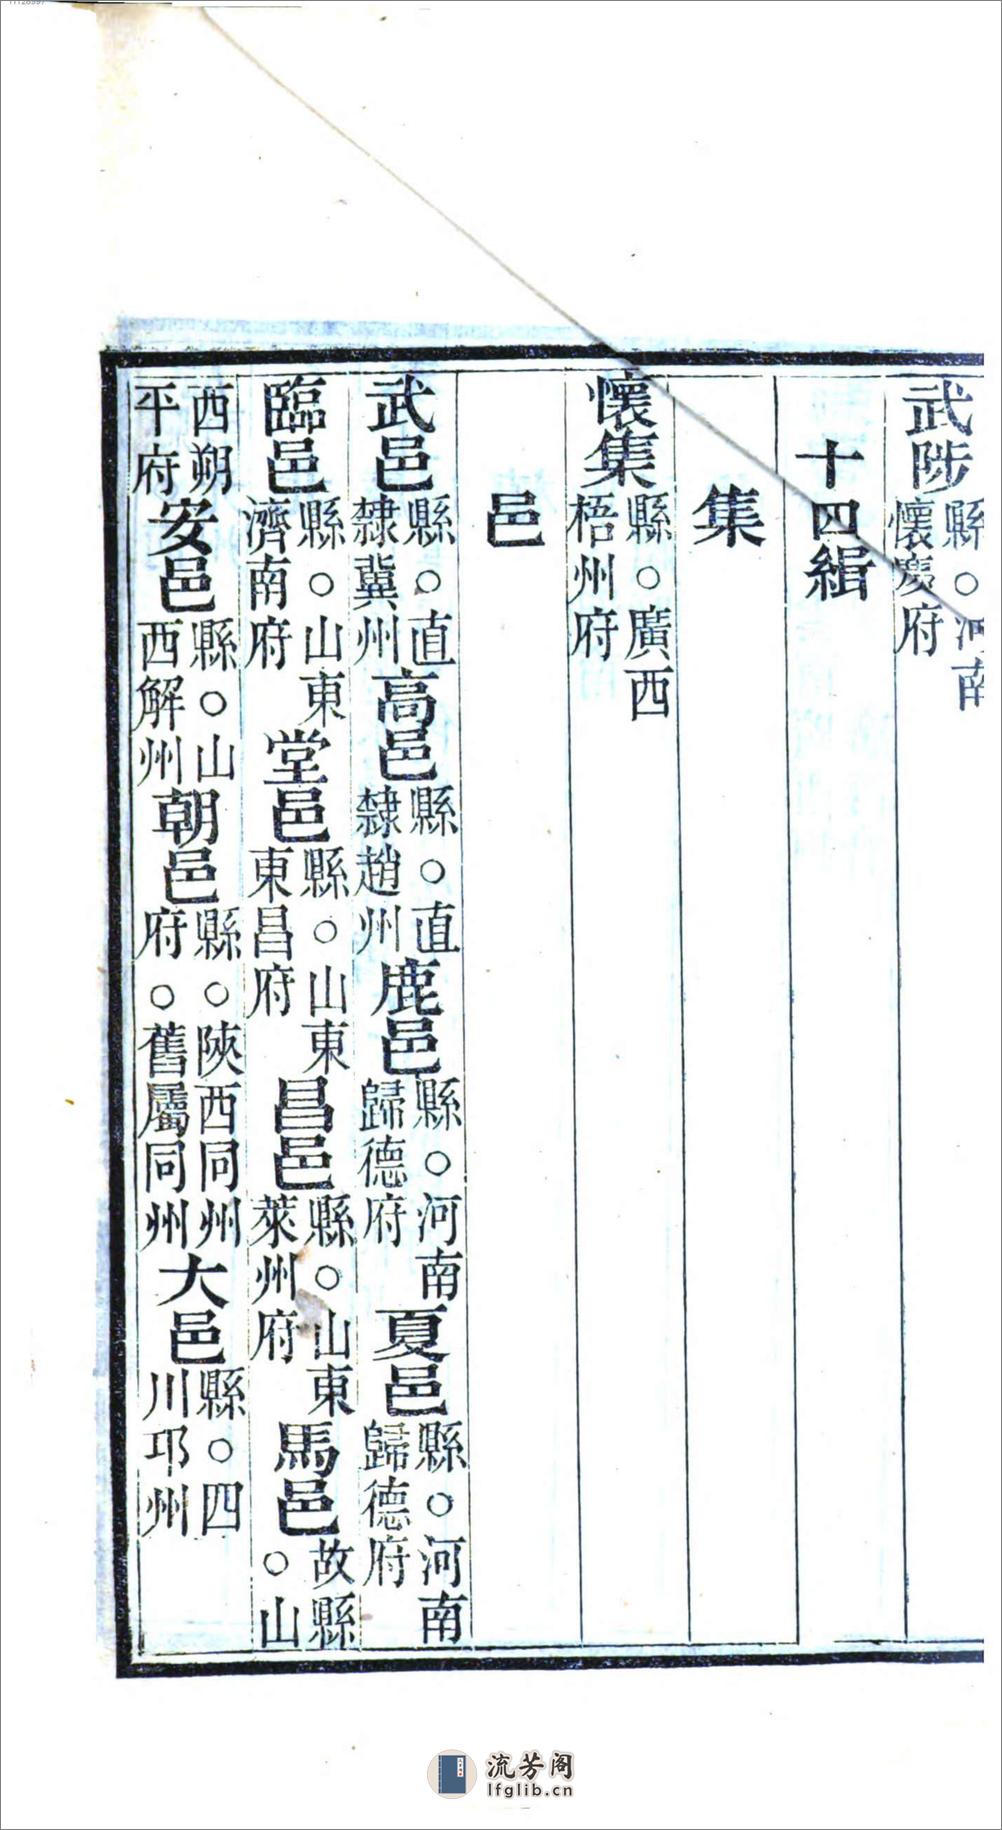 武陟縣○河南懷慶府
十四緝
集
懷集縣○廣西梧州府
邑
武邑縣○直隸冀州高邑縣○直隸趙州鹿邑縣○河南歸德府夏邑縣○河南歸德府
臨邑縣○山東濟南府堂邑縣○山東東昌府昌邑縣○山東萊州府馬邑故縣○山
西朔平府安邑縣○山西解州朝邑縣○陝西同州府○舊屬同州大邑縣○四川邛州
流芳阁
lfglib.cn